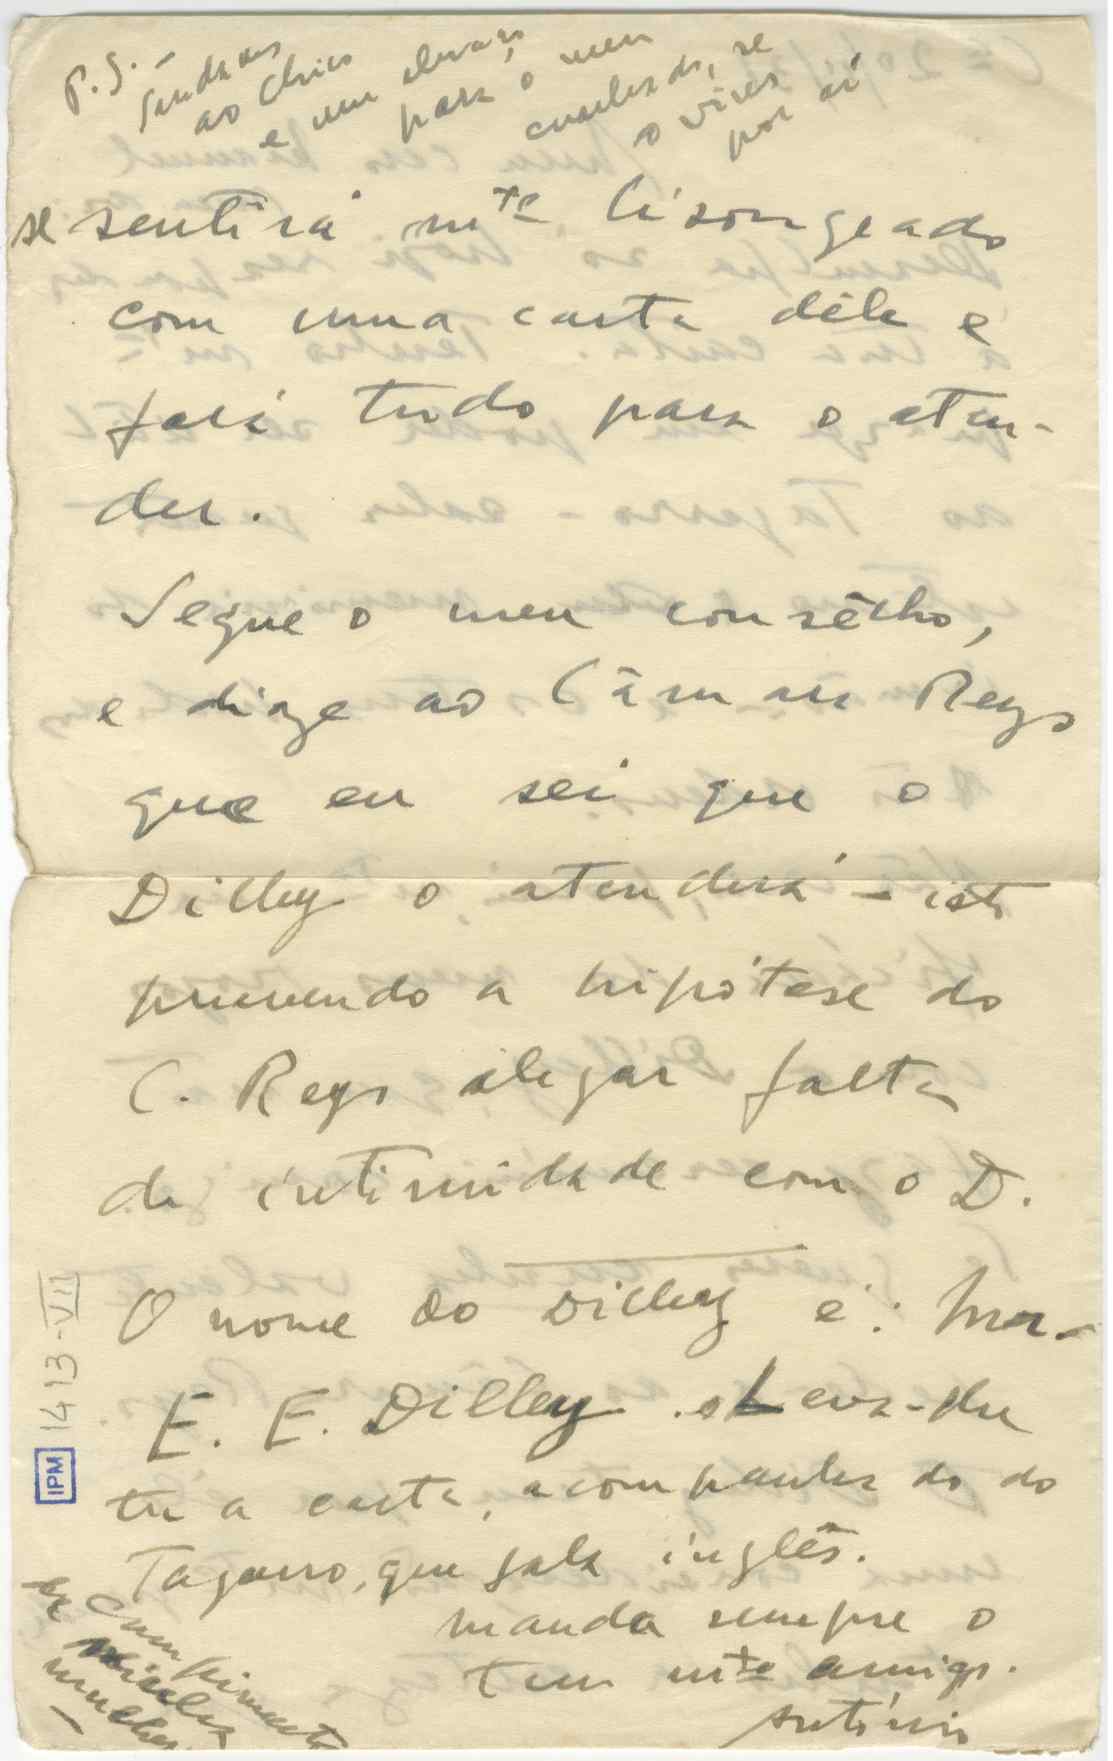 P.S. –
Saudades
ao Chico
e um abraço
para o meu
cunhado, se
o vires
por aí
se sentirá mte lisongeado
com uma carta dêle e
fará tudo para o aten-
der.
Segue o meu consêlho,
e dize ao Câmara Reys
que eu sei que o
Dilley o atenderá – isto
prevendo a hipótese do
C. Reys alegar falta
de intimidade com o D.
O nome do Dilley é: Mr.
E. E. Dilley. Leva-lhe
tu a carta, acompanhado do
Tagarro, que fala inglês.
Manda sempre o
teu mto amigo.
António
Cumprimentos
da minha
mulher
IPM 1413-VII